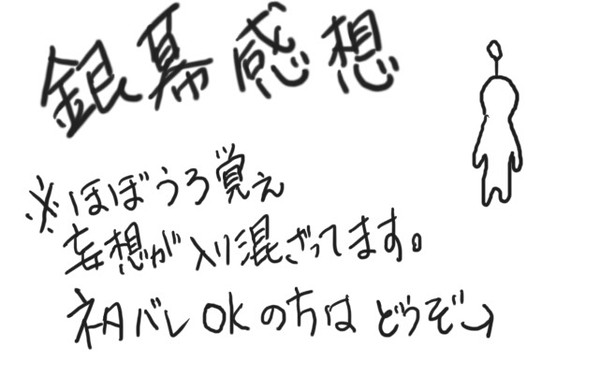 銀幕感想
※ほぼうろ覚え
妄想が入り混ざってます。
ネタバレOKの方はどうぞ→